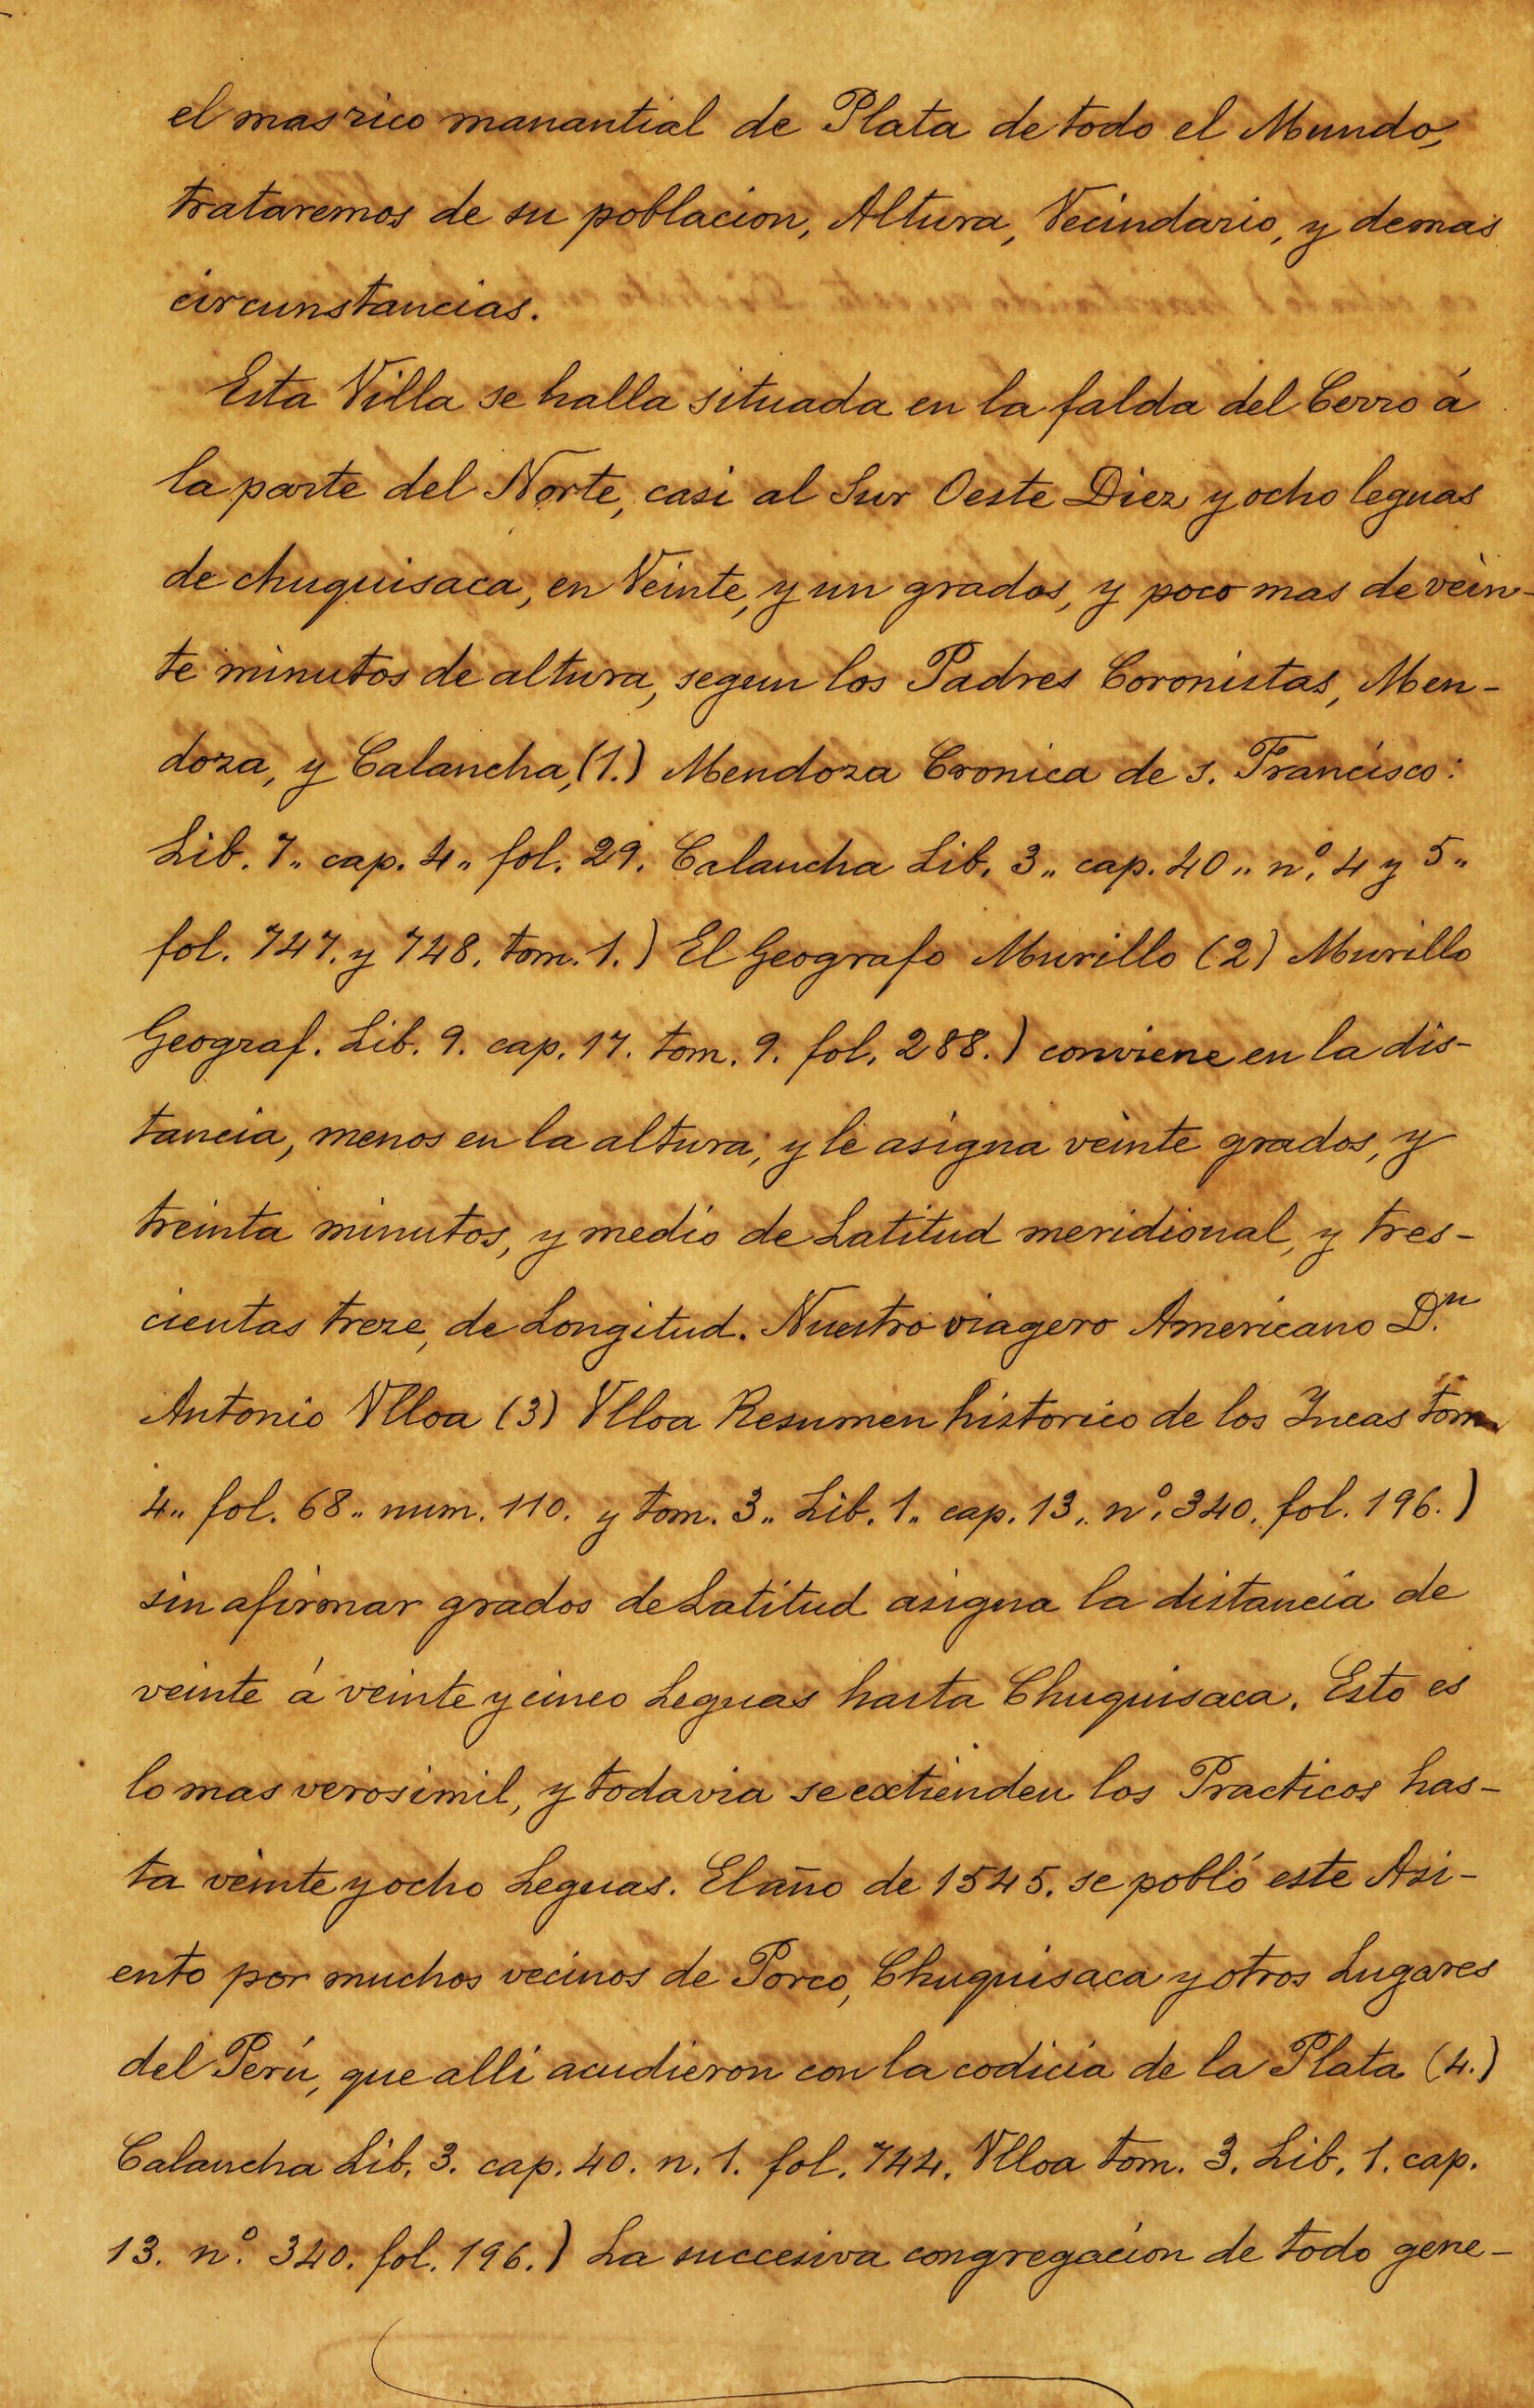 el mas rico manantial de Plata de todo el Mundo,
trataremos de su poblacion, Altura, Vecindario, y demas
circunstancias.
Esta Villa se halla situada en la falda del Cerro á
la parte del Norte, casi al Sur Oeste Diez y ocho leguas
de chuquisaca, en Veinte, y un grados, y poco mas de vein-
te minutos de altura, segun los Padres Coronistas, Men-
doza, y Calancha, (1.) Mendoza Cronica de s. Francisco:
Lib. 7,, cap. 4,, fol. 29. Calancha Lib. 3,, cap. 40,, nº. 4 y 5,,
fol. 747. y 748. tom. 1.) El Geografo Murillo (2) Murillo
Geograf. Lib. 9. cap. 17. tom. 9. fol. 288.) conviene en la dis-
tancia, menos en la altura; y le asigna veinte grados, y
treinta minutos, y medio de Latitud meridional, y tres-
cientas treze, de Longitud. Nuestro viagero Americano D.n
Antonio Vlloa (3) Vlloa Resumen historico de los Incas tom.
4,, fol. 68,, num. 110. y tom. 3,, Lib. 1,, cap. 13,, nº. 340. fol. 196.)
sin afirmar grados de Latitud asigna la distancia de
veinte á veinte y cinco Leguas hasta Chuquisaca. Esto es
lo mas verosimil, y todavia se extienden los Practicos has-
ta veinte y ocho Leguas. El año de 1545. se pobló este Asi-
ento por muchos vecinos de Porco, Chuquisaca y otros Lugares
del Perú, que alli acudieron con la codicia de la Plata (4.)
Calancha Lib. 3. cap. 40. n. 1. fol. 744. Vlloa tom. 3. Lib. 1. cap.
13. nº. 340. fol. 196.) La succesiva congregacion de todo gene-